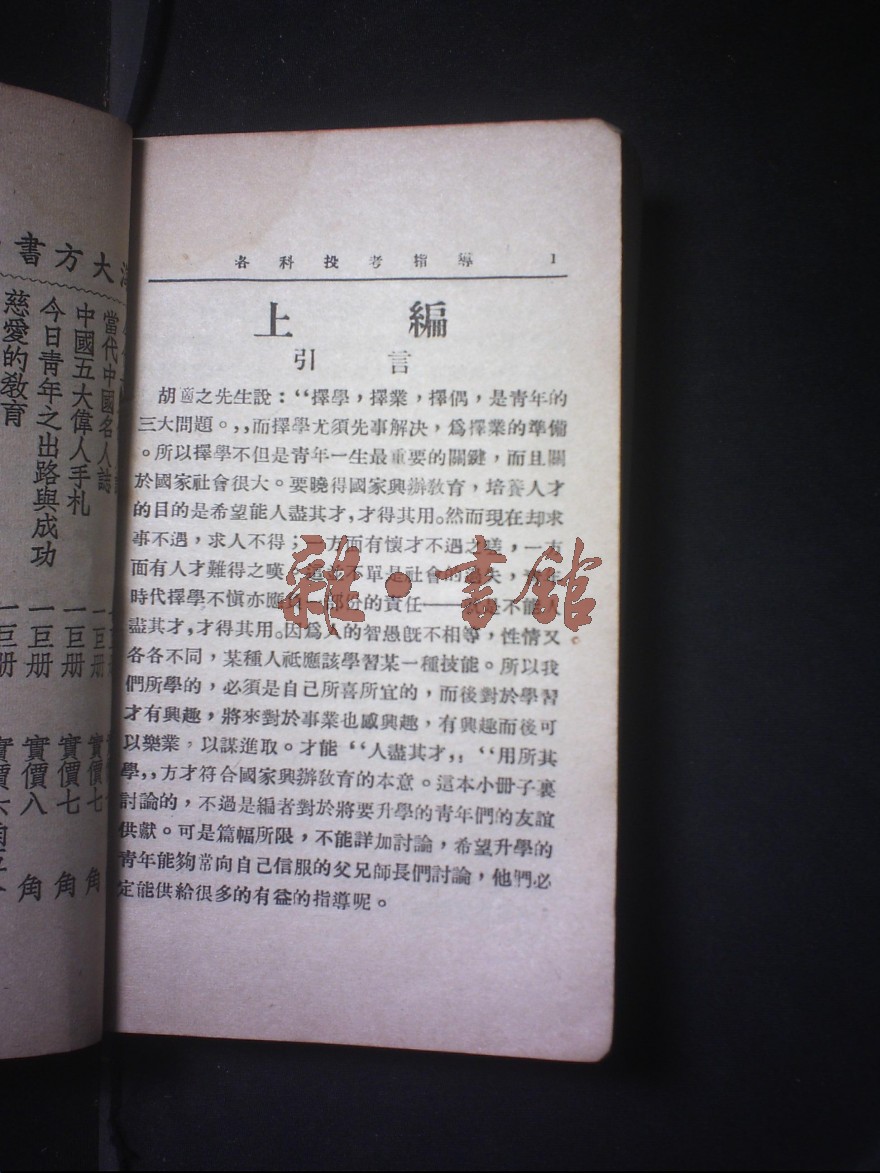 各科投考指導 1
上編
引言
胡適之先生說：“擇學，擇業，擇偶，是青年的
三大問題。，，而擇學尤須先事解决，爲擇業的準備
。所以擇學不但是青年一生最重要的關鍵，而且關
於國家社會很大。要曉得國家興辦敎育，培養人才
的目的是希望能人盡其才，才得其用。然而現在却求
事不遇，求人不得；一方面有懷才不遇之嗟，一方
面有人才難得之嘆。這並不單是社會的過失，青年
時代擇學不愼亦應負一部份的責任——就是不能人
盡其才，才得其用。因爲人的智愚旣不相等，性情又
各各不同，某種人祗應該學習某一種技能。所以我
們所學的，必須是自己所喜所宜的，而後對於學習
才有興趣，將來對於事業也感興趣，有興趣而後可
以樂業，以謀進取。才能“人盡其才，，“用所其
學，，方才符合國家興辦敎育的本意。這本小册子裏
討論的，不過是編者對於將要升學的青年們的友誼
供獻。可是篇幅所限，不能詳加討論，希望升學的
青年能夠常向自己信服的父兄師長們討論，他們必
定能供給很多的有益的指導呢。
雜·書館
大方書
當代中國名人誌 一巨册 實價七角
中國五大偉人手札 一巨册 實價七角
今日青年之出路與成功 一巨册 實價八角
慈愛的敎育 一巨册 實價六